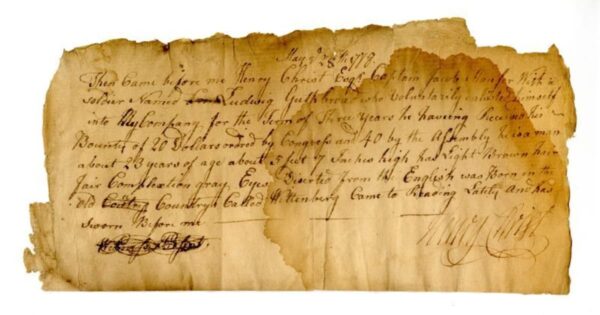 May ye 28th. 1778.
Then Came before me Henry Christ Esqr. Captain Jacob with a
soldier Named Ludwig Gutbread who voluntarily himself
into MyCompany for the Term of Three Years he having Received his
Bounty of 20 Dollars ordered by Congress and 40 by the Assembly he is a man
about 23 years of age about 5 feet 7 Inches high has Light Brown Hair
fair Complextion gray Eyes Diserted from the English was Born in the
old Country Called Came to Reading Lately And has
Sworn Before me
Henry Christ